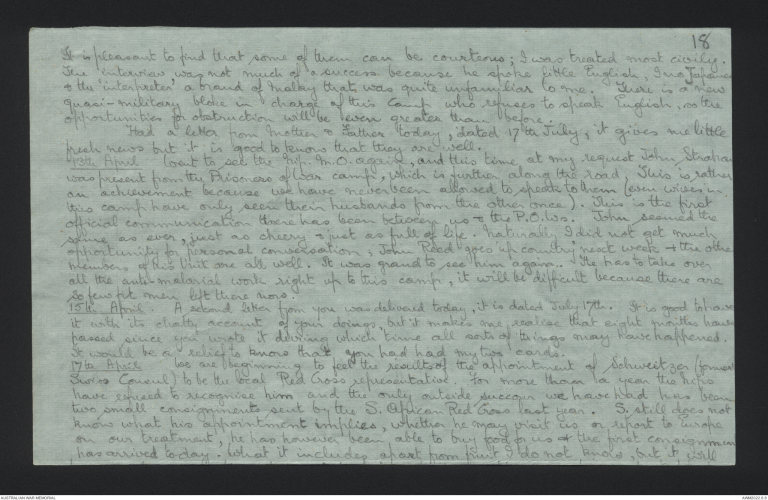 18
It is pleasant to find that some of them can be courteous; I was treated most civilly.
The interview was not much of a success because he spoke little English, I no Japanese
& the "interpreter" a brand of malay that was quite unfamiliar to me. There is a new
quasi-military bloke in charge of this Camp who refuses to speak English, so the
opportunities for obstruction will be even greater than before.
Had a letter from Mother & Father today, dated 17th July, it gives me little
fresh news but it is good to know that they are well.
13th April Went to see the Nip. M.O. again, and this time at my request John Strahan
was present from the Prisoners of War camp, which is further along the road. This is rather
an achievement because we have never been allowed to speak to them (even wives in
this camp have only seen their husbands from there other once). This is the first
official communication there has been between us & the P.O.Ws. John seemed the
same as ever, just as cheery & just as full of life. Naturally I did not get much
opportunity for personal conversation; John Reed goes up country next week & the other
members of his Unit are all well. It was grand to see him again. He has to take over
all the anti-malarial work right up to this camp, it will be difficult because there are
so few fit men left there now.
15th April A second letter from you was delivered today, it is dated July 17th. It is good to have
it with its chatty account of your doings, but it makes me realise that eight months have
passed since you wrote it during which time all sorts of things may have happened.
It would be a relief to know that you had had my two cards.
17th April We are beginning to feel the results of the appointment of Schweitzer (former
Swiss Consul) to be the local Red Cross representative. For more than a year the nips
have refused to recognise him and the only outside succour we have had has been
two small consignments sent by the S. African Red Cross last year. S. still does not
know what his appointment implies, whether he may visit us or report to Europe
on our treatment, he has however been able to buy food for us & the first consignment
has arrived today. What it includes apart from fruit I do not know, but it will
AUSTRALIAN WAR MEMORIAL